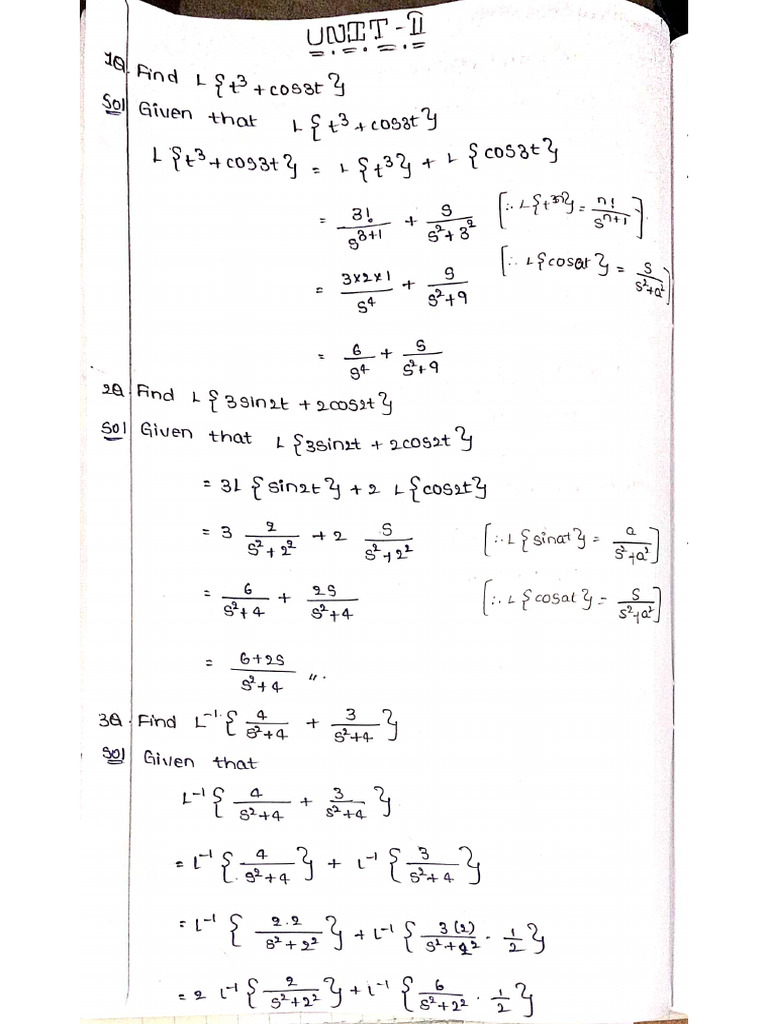 UNIT-II
1Q. Find L{t³+cos3t}
Sol Given that L{t³+cos3t}
L{t³+cos3t} = L{t³} + L{cos3t}
= 3!/s^(3+1) + s/(s²+3²) [∵ L{tⁿ} = n!/s^(n+1)]
= (3×2×1)/s⁴ + s/(s²+9) [∵ L{cosat} = s/(s²+a²)]
= 6/s⁴ + s/(s²+9)
2Q. Find L{3sin2t + 2cos2t}
Sol Given that L{3sin2t + 2cos2t}
= 3L{sin2t} + 2 L{cos2t}
= 3 2/(s²+2²) + 2 s/(s²+2²) [∵ L{sinat} = a/(s²+a²)]
= 6/(s²+4) + 2s/(s²+4) [∵ L{cosat} = s/(s²+a²)]
= (6+2s)/(s²+4) ″.
3Q. Find L⁻¹{4/(s²+4) + 3/(s²+4)}
Sol Given that
L⁻¹{4/(s²+4) + 3/(s²+4)}
= L⁻¹{4/(s²+4)} + L⁻¹{3/(s²+4)}
= L⁻¹{2.2/(s²+2²)} + L⁻¹{3(2)/(s²+2²) · 1/2}
= 2 L⁻¹{2/(s²+2²)} + L⁻¹{6/(s²+2²) · 1/2}